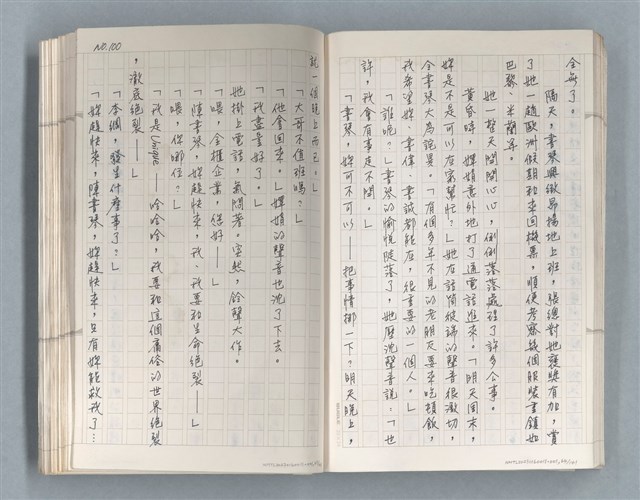 全無了。
隔天，書琴興緻昂揚地上班，張總對她褒獎有加，賞
了她一趟歐洲假期和來回機票，順便考察幾個服裝重鎮如
巴黎、米蘭等。
她一整天開開心心，俐俐落落處理了許多公事。
黃昏時，嬋娟意外地打了通電話進來。「明天周末，
妳是不是可以在家幫忙？」她在話筒彼端的聲音很激切，
令書琴大為詫異。「有個多年不見的老朋友要來吃頓飯，
我希望妳、書偉、書誠都能在，很重要的一個人。」
「誰呢？」書琴的愉悅陡落了，她壓沈聲音說：「也
許，我會有事走不開。」
「書琴，妳可不可以——把事情挪一下？明天晚上，
NO.100
就一個晚上而已。」
「大哥不值班嗎？」
「他會回來。」嬋娟的聲音也沈了下去。
「我盡量好了。」
她掛上電話，氣悶著。突然，鈴聲大作。
「喂，全權企業，您好——」
「陳書琴，妳趕快來，我、我要和生命絕裂——」
「喂，你哪位？」
「我是Unique——哈哈哈，我要和這個庸俗的世界絕裂
，澈底絕裂——」
「本綱，發生什麼事了？」
「妳趕快來，陳書琴，妳趕快來，只有妳能救我了…